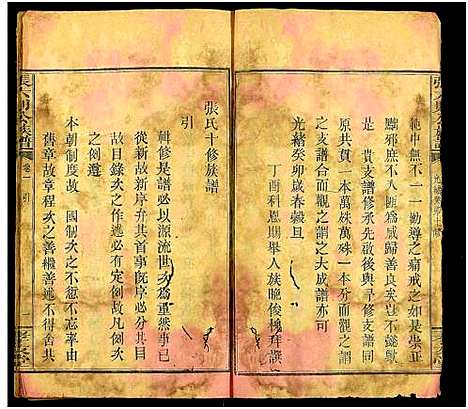 範中無不一一勸導之痛戒之如是崇正
黜邪庶不入匪為咸歸善良矣豈不懿歟
貴支譜修承先啟後與尋修支譜
原共貫一本萬殊萬殊一本分而觀之謂
之支譜合而觀之謂之大成譜亦可
光緒癸卯歲春穀旦
丁酉科恩賜舉人族晚俊極拜譔
張氏十修族譜
引
輯修是譜必以源流世次為重然事已
從新故新序弁其首事既序必分其目
故目錄次之作述必有定例故凡例次
之例遵
本朝制度故 國制次之不愆不忘率由
舊章故章程次之善繼善述不得舍共
張大明公族譜
卷一 引
孝友堂